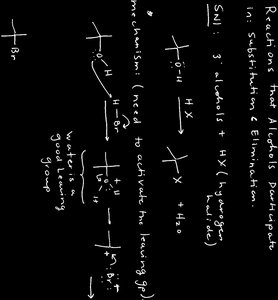 Reactions that Alcohols participate
in: Substitution & Elimination.
SN1: 3° alcohols + HX (hydrogen
halide)
O-H HX X + H2O
* mechanism: (need to activate the leaving gp)
O H H-Br O H H Br
water is a
good leaving
group
Br